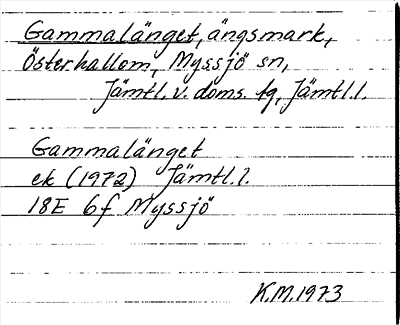 Gammalänget, ängsmark,
Österhallom, Myssjö sn,
Jämtl. v. doms. tg, Jämtl.l.
Gammalänget
ek (1972) Jämtl.l.
18E 6f Myssjö
K.M.1973